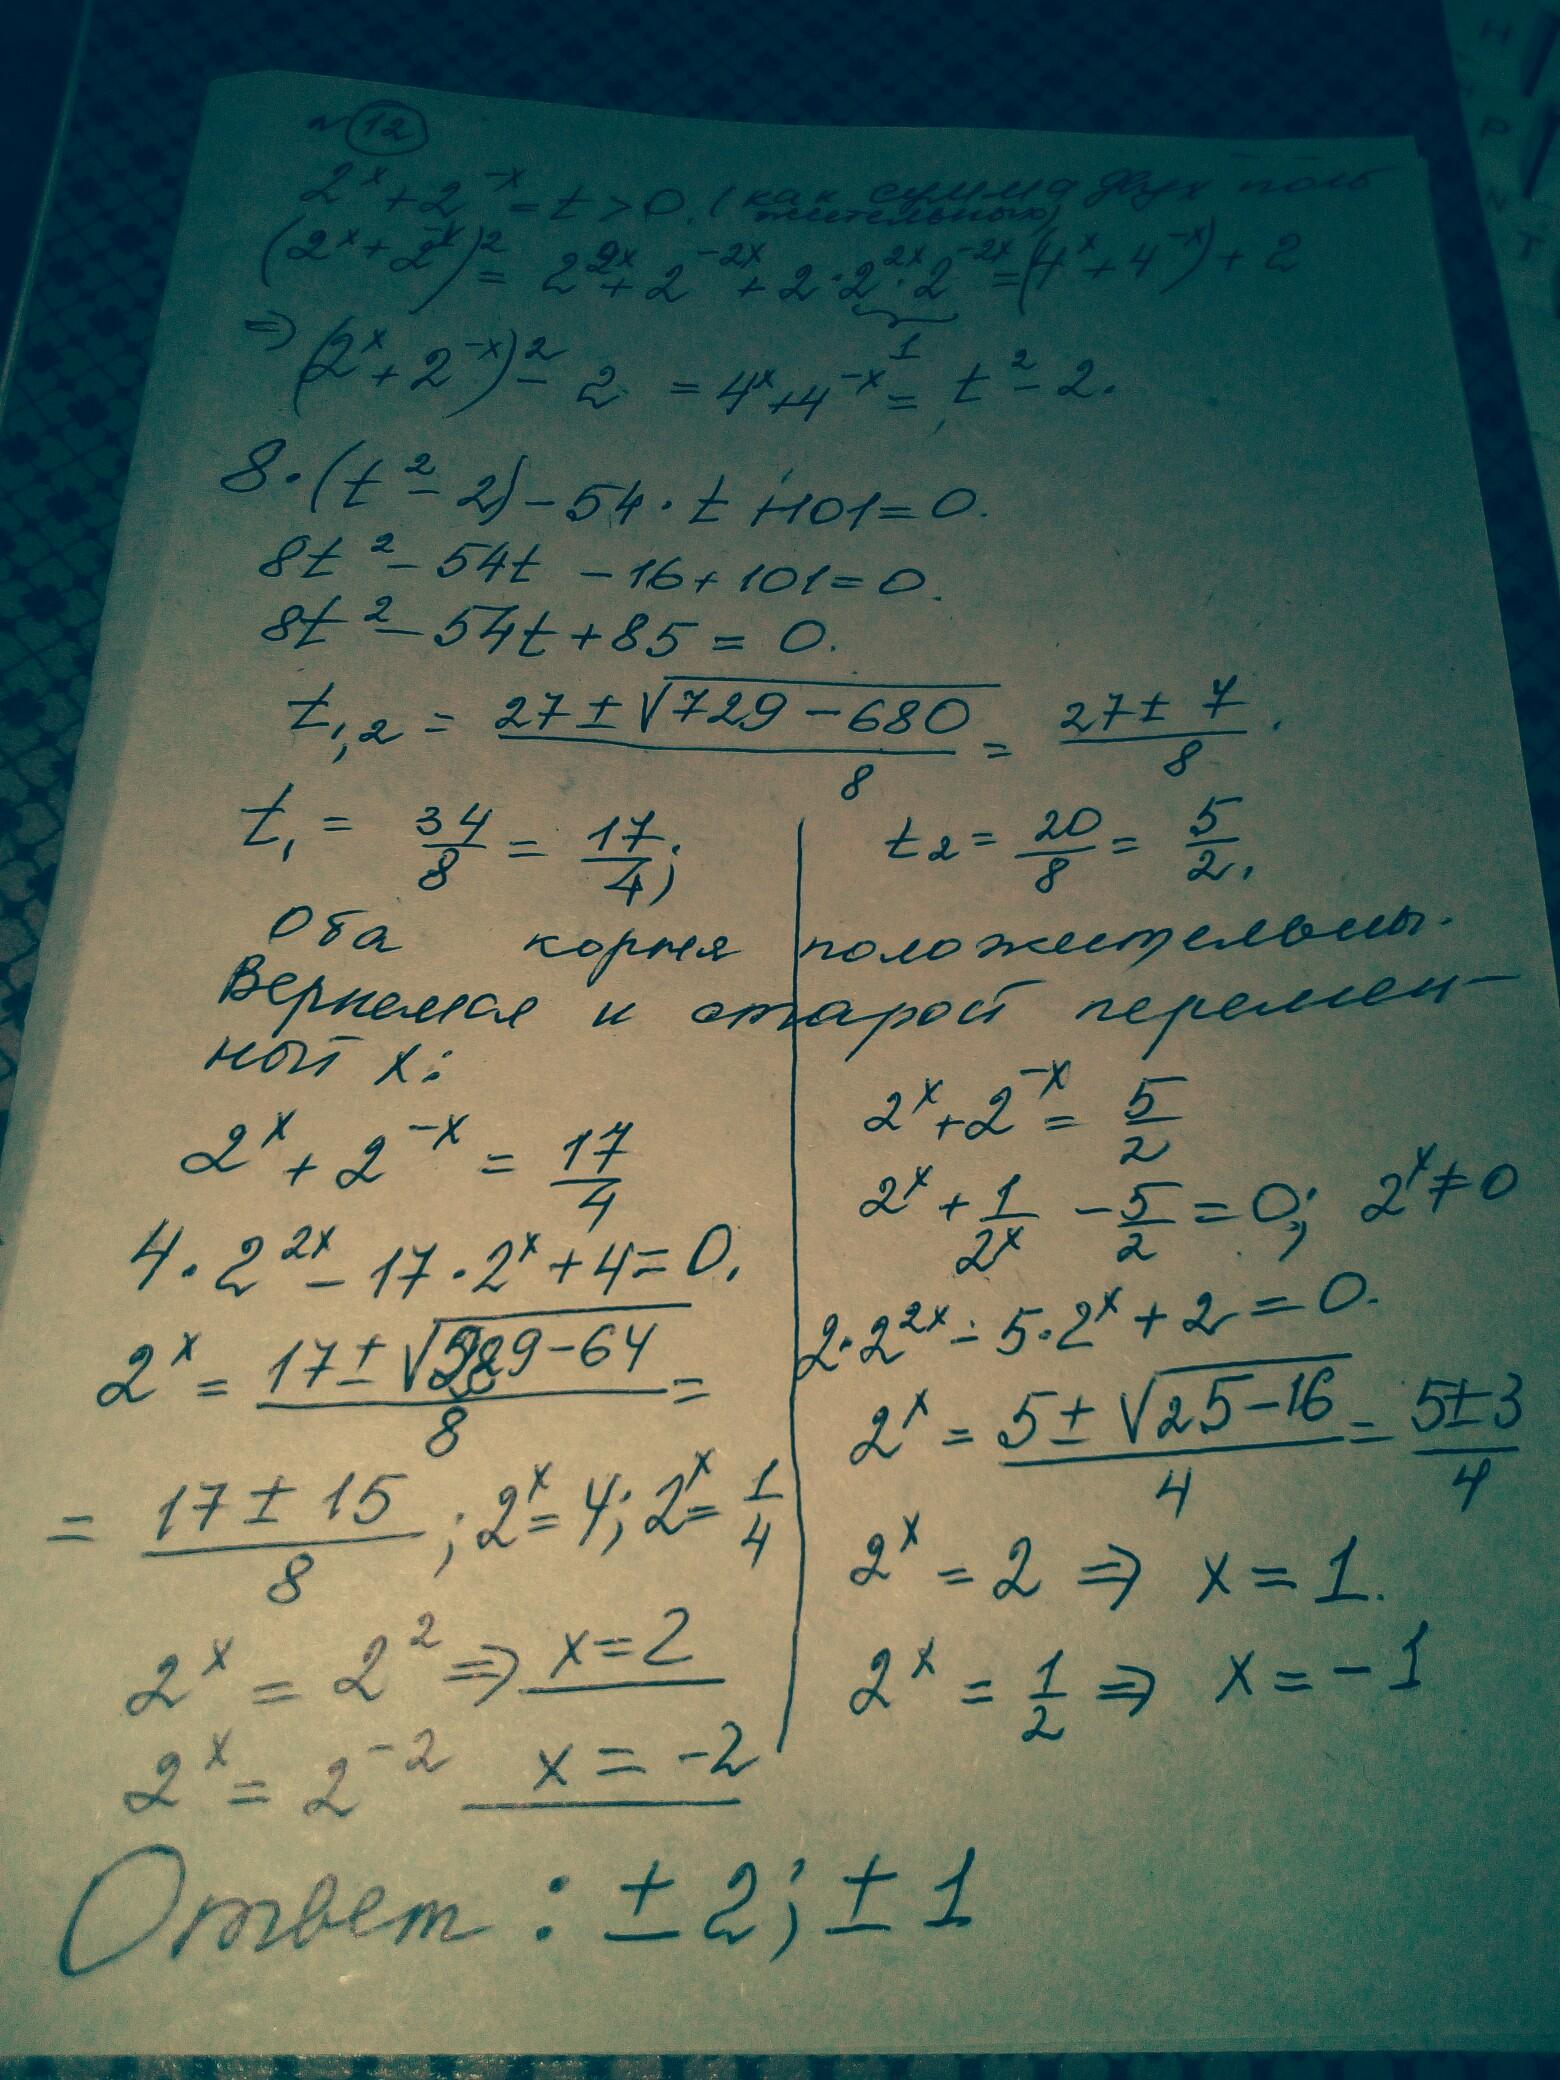 N 12
2^x + 2^-x = t > 0. (как сумма двух поло
жительных)
(2^x + 2^-x)^2 = 2^2x + 2^-2x + 2 · 2^2x · 2^-2x = (4^x + 4^-x) + 2
1
⇒ (2^x + 2^-x)^2 - 2 = 4^x + 4^-x = t^2 - 2.
8 · (t^2 - 2) - 54 · t + 101 = 0.
8t^2 - 54t - 16 + 101 = 0.
8t^2 - 54t + 85 = 0.
t1,2 = (27 ± √(729 - 680))/8 = (27 ± 7)/8.
t1 = 34/8 = 17/4;
t2 = 20/8 = 5/2.
Оба корня положительны.
Вернемся к старой перемен-
ной x:
2^x + 2^-x = 17/4
4 · 2^2x - 17 · 2^x + 4 = 0.
2^x = (17 ± √(289 - 64))/8 =
= (17 ± 15)/8; 2^x = 4; 2^x = 1/4
2^x = 2^2 ⇒ x = 2
2^x = 2^-2 x = -2
2^x + 2^-x = 5/2
2^x + 1/2^x - 5/2 = 0; 2^x ≠ 0
2 · 2^2x - 5 · 2^x + 2 = 0.
2^x = (5 ± √(25 - 16))/4 = (5 ± 3)/4
2^x = 2 ⇒ x = 1.
2^x = 1/2 ⇒ x = -1
Ответ: ± 2; ± 1